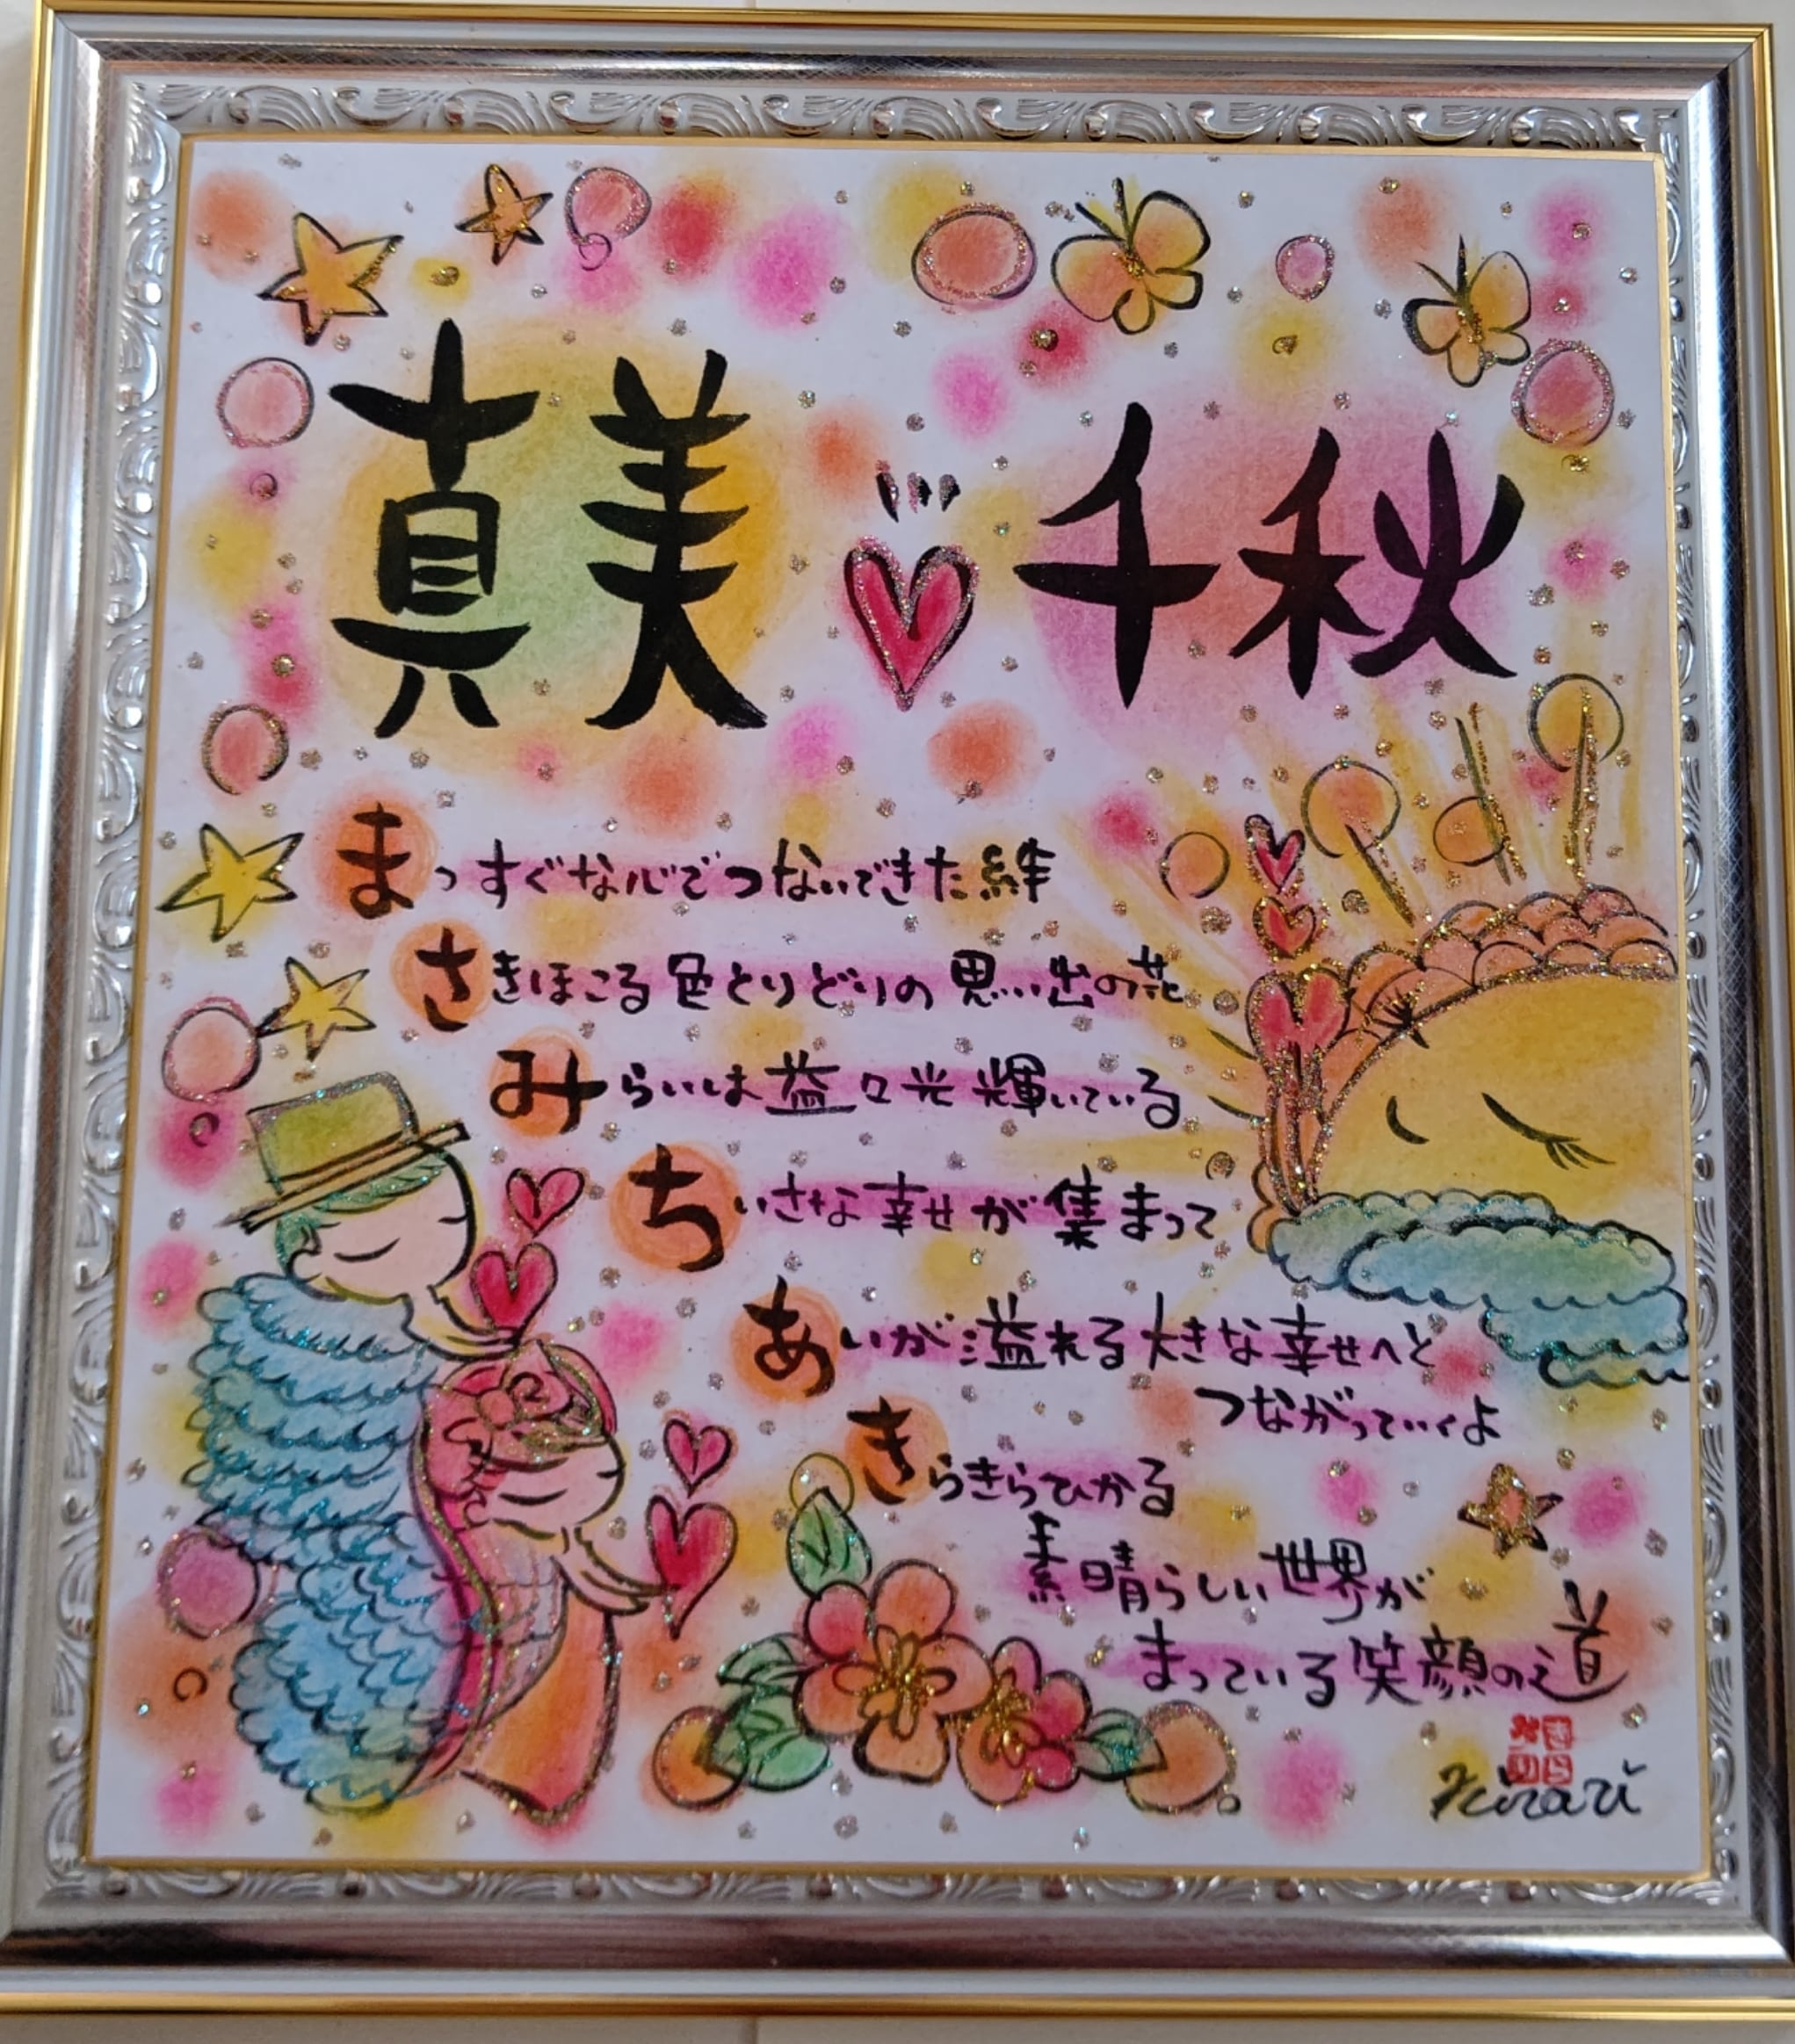 真美 千秋
まっすぐな心でつないできた絆
さきほこる色とりどりの思い出の花
みらいは益々光輝いている
ちいさな幸せが集まって
あいが溢れる大きな幸せへと
つながっていくよ
きらきらひかる
素晴らしい世界が
まっている笑顔の道
きらり
Kirari